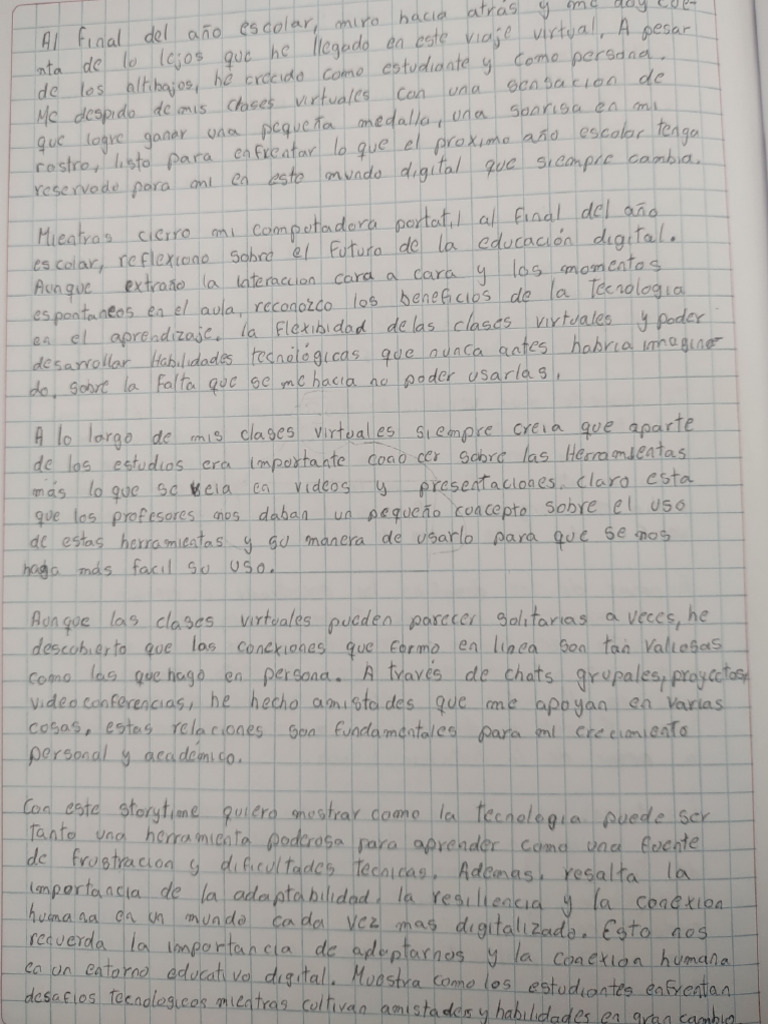 Al final del año escolar, miro hacia atrás y me doy cue-
nta de lo lejos que he llegado en este viaje virtual. A pesar
de los altibajos, he crecido como estudiante y como persona.
Me despido de mis clases virtuales con una sensacion de
que logre ganar una pequeña medalla, una sonrisa en mi
rostro, listo para enfrentar lo que el proximo año escolar tenga
reservado para mi en este mundo digital que siempre cambia.
Mientras cierro mi computadora portatil al final del año
escolar, reflexiono sobre el futuro de la educación digital.
Aunque extraño la interaccion cara a cara y los momentos
espontaneos en el aula, reconozco los beneficios de la Tecnologia
en el aprendizaje. la flexibidad de las clases virtuales y poder
desarrollar Habilidades tecnológicas que nunca antes habria imagina
do, sobre la falta que se me hacia no poder usarlas.
A lo largo de mis clases virtuales siempre creia que aparte
de los estudios era importante conocer sobre las Herramientas
más lo que se veia en videos y presentaciones. claro esta
que los profesores nos daban un pequeño concepto sobre el uso
de estas herramientas y su manera de usarlo para que se nos
haga más facil su uso.
Aunque las clases virtuales pueden parecer solitarias a veces, he
descubierto que las conexiones que formo en linea son tan valiosas
como las que hago en persona. A través de chats grupales, proyectos,
videoconferencias, he hecho amistades que me apoyan en varias
cosas, estas relaciones son fundamentales para mi crecimiento
personal y académico.
Con este storytime quiero mostrar como la tecnologia puede ser
tanto una herramienta poderosa para aprender como una fuente
de frustracion y dificultades tecnicas. Ademas, resalta la
importancia de la adaptabilidad, la resiliencia y la conexion
humana en un mundo cada vez mas digitalizado. Esto nos
recuerda la importancia de adaptarnos y la conexion humana
en un entorno educativo digital. Muestra como los estudiantes enfrentan
desafios tecnologicos mientras cultivan amistades y habilidades en gran cambio